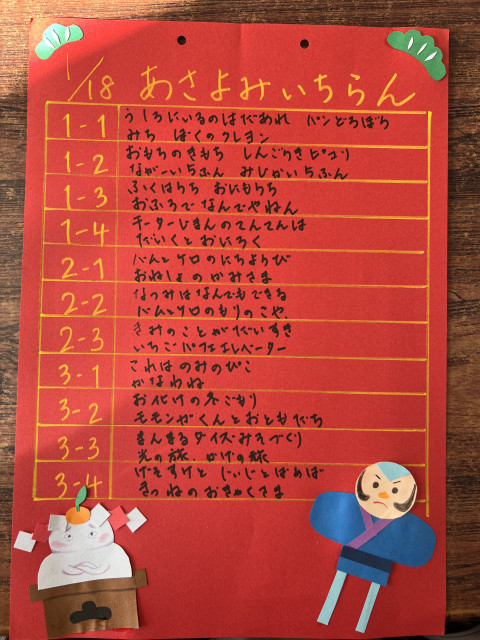 1/18 あさよみいちらん
1-1 うしろにいるのはだあれ パンどろぼう
みち ぼくのクレヨン
1-2 おもちのきもち しんごうきピコリ
ながーいちふん みじかいちふん
1-3 ふくはうち おにもうち
おふろでなんでやねん
1-4 チーターじまんのてんてんは
だいくとおにろく
2-1 バムとケロのにちようび
おねしょのかみさま
2-2 なつみはなんでもできる
バムとケロのもりのこや
2-3 きみのことがだいすき
いちごパフェエレベーター
3-1 これはのみのぴこ
かなわね
3-2 お化けの冬ごもり
モモンガくんとおともだち
3-3 まんまるダイズみそづくり
光の旅 かげの旅
3-4 げたすけと じいじとばあば
きつねのおきゃくさま